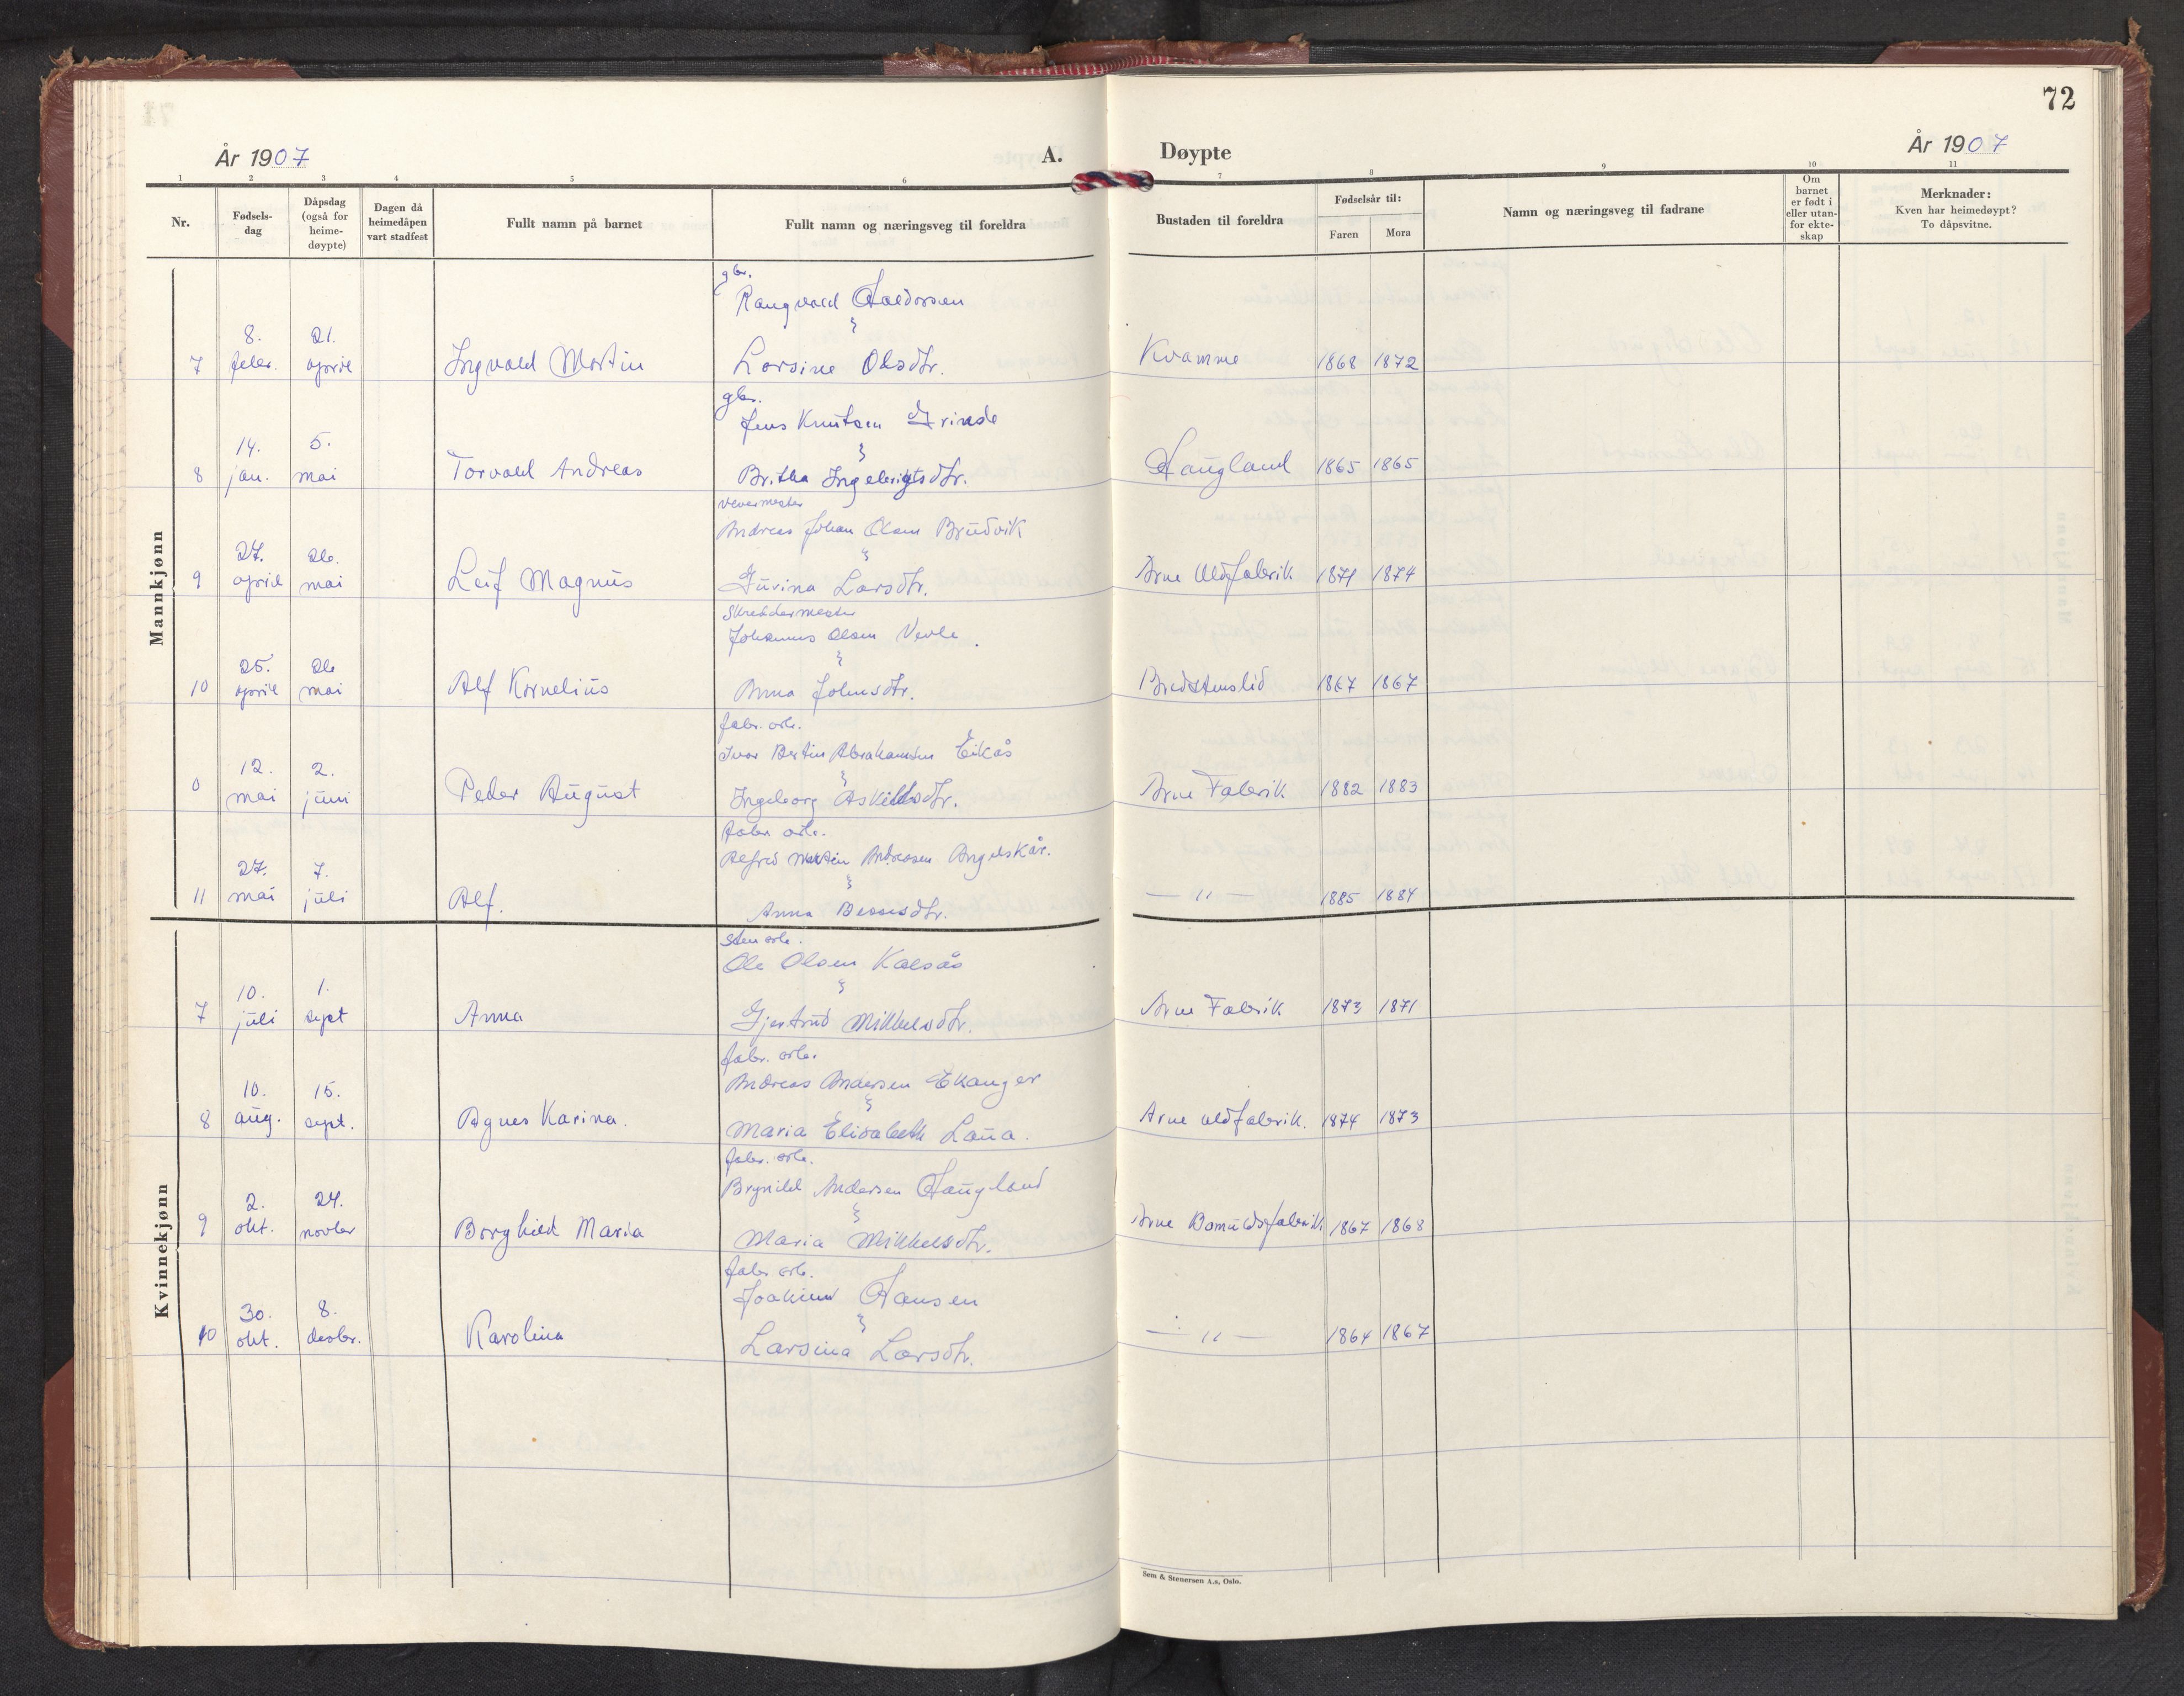 72
År 1907 A. Døypte År 1907
1 2 3 4 5 6 7 8 9 10 11
Nr. Fødsels-dag Dåpsdag (også for heime-døypte) Dagen då heimedåpen vart stadfest Fullt namn på barnet Fullt namn og næringsveg til foreldra Bustaden til foreldra Fødselsår til: Faren Mora Namn og næringsveg til fadrane Om barnet er født i eller utan-for ekte-skap Merknader: Kven har heimedøypt? To dåpsvitne.
Mannkjønn
gbr.
Rangvald Haldorsen
&
7 8. febr. 21. april Ingvald Martin Lorsine Olsdtr. Kvamme 1868 1872
gbr.
Jens Knutsen Grinde
&
8 14. jan. 5. mai Torvald Andreas Britha Ingebrigtsdtr. Haugland 1865 1865
vevermester
Andreas Johan Olsen Brudvik
&
9 27. april 26. mai Leif Magnus Gurina Larsdtr. Arne Uldfabrik 1871 1874
Skreddermester
Johannes Olsen Vevle.
&
10 25. april 26 mai Alf Kornelius Anna Johnsdtr. Bredstenslid 1867 1867
fabr. arb.
Ivar Bertin Abrahamsen Eikås
&
0 12. mai 2. juni Peder August Ingeborg Askildsdtr. Arne Fabrik 1882 1883
fabr. arb.
Alfred Martin Andreasen Angelskår.
&
11 27. mai 7. juli Alf. Anna Besesdtr. — " — 1885 1884
Kvinnekjønn
Sten arb.
Ole Olsen Kalsås
&
7 10. juli 1. sept Anna Gjertrud Mikkelsdtr. Arne Fabrik 1873 1871
fabr. arb.
Andreas Andersen Ekanger
&
8 10. aug. 15. sept. Agnes Karina. Maria Elisabeth Laua. Arne uldfabrik. 1874 1873
fabr. arb.
Brynild Andersen Haugland
&
9 2. okt. 24. novbr Borghild Maria Maria Mikkelsdtr. Arne Bomuldsfabrik 1867 1868
fabr arb.
Joakim Hansen
&
10 30. okt. 8. desbr. Karolina Larsina Larsdtr. — " — 1864 1867
Sem & Stenersen A.s, Oslo.